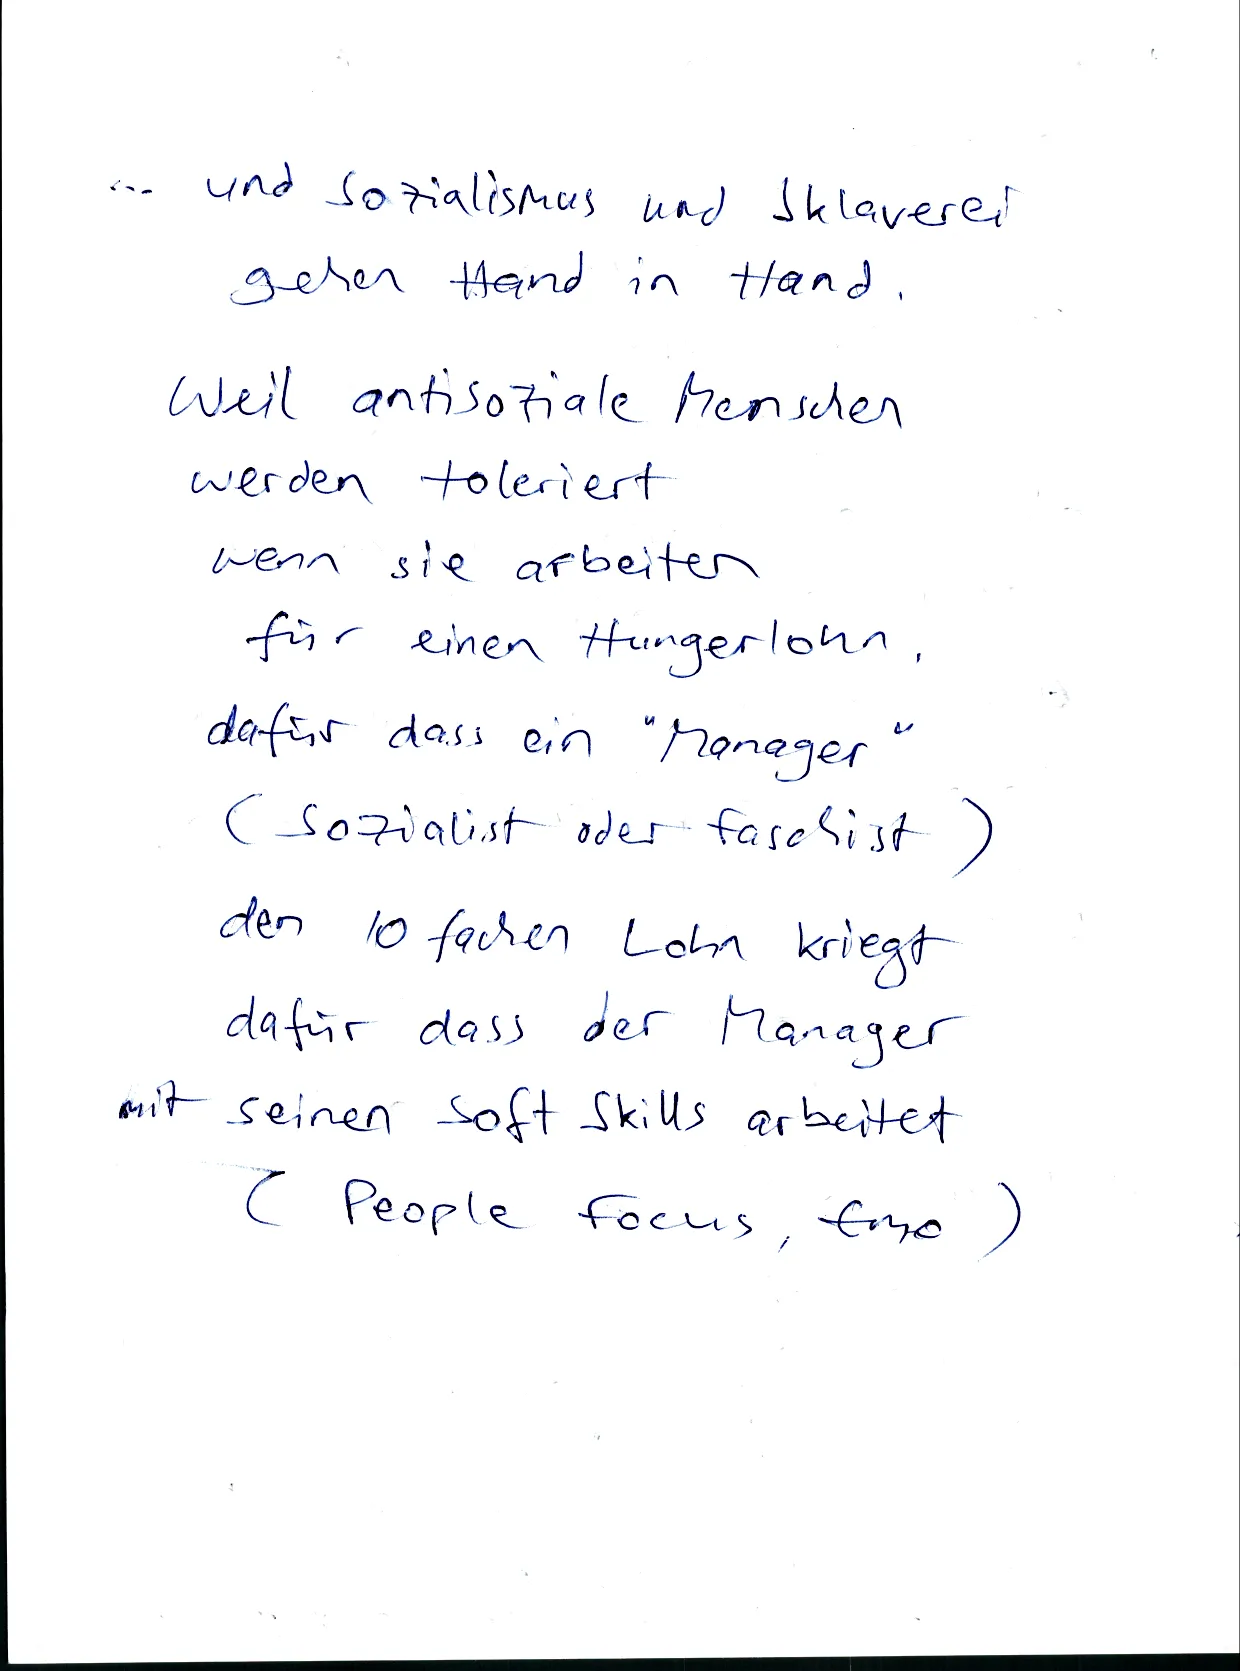 ... und Sozialismus und Sklaverei
gehen Hand in Hand.
Weil antisoziale Menschen
werden toleriert
wenn sie arbeiten
für einen Hungerlohn,
dafür dass ein "Manager"
(Sozialist oder Faschist)
den 10 fachen Lohn kriegt
dafür dass der Manager
mit seinen Soft Skills arbeitet
(People Focus,